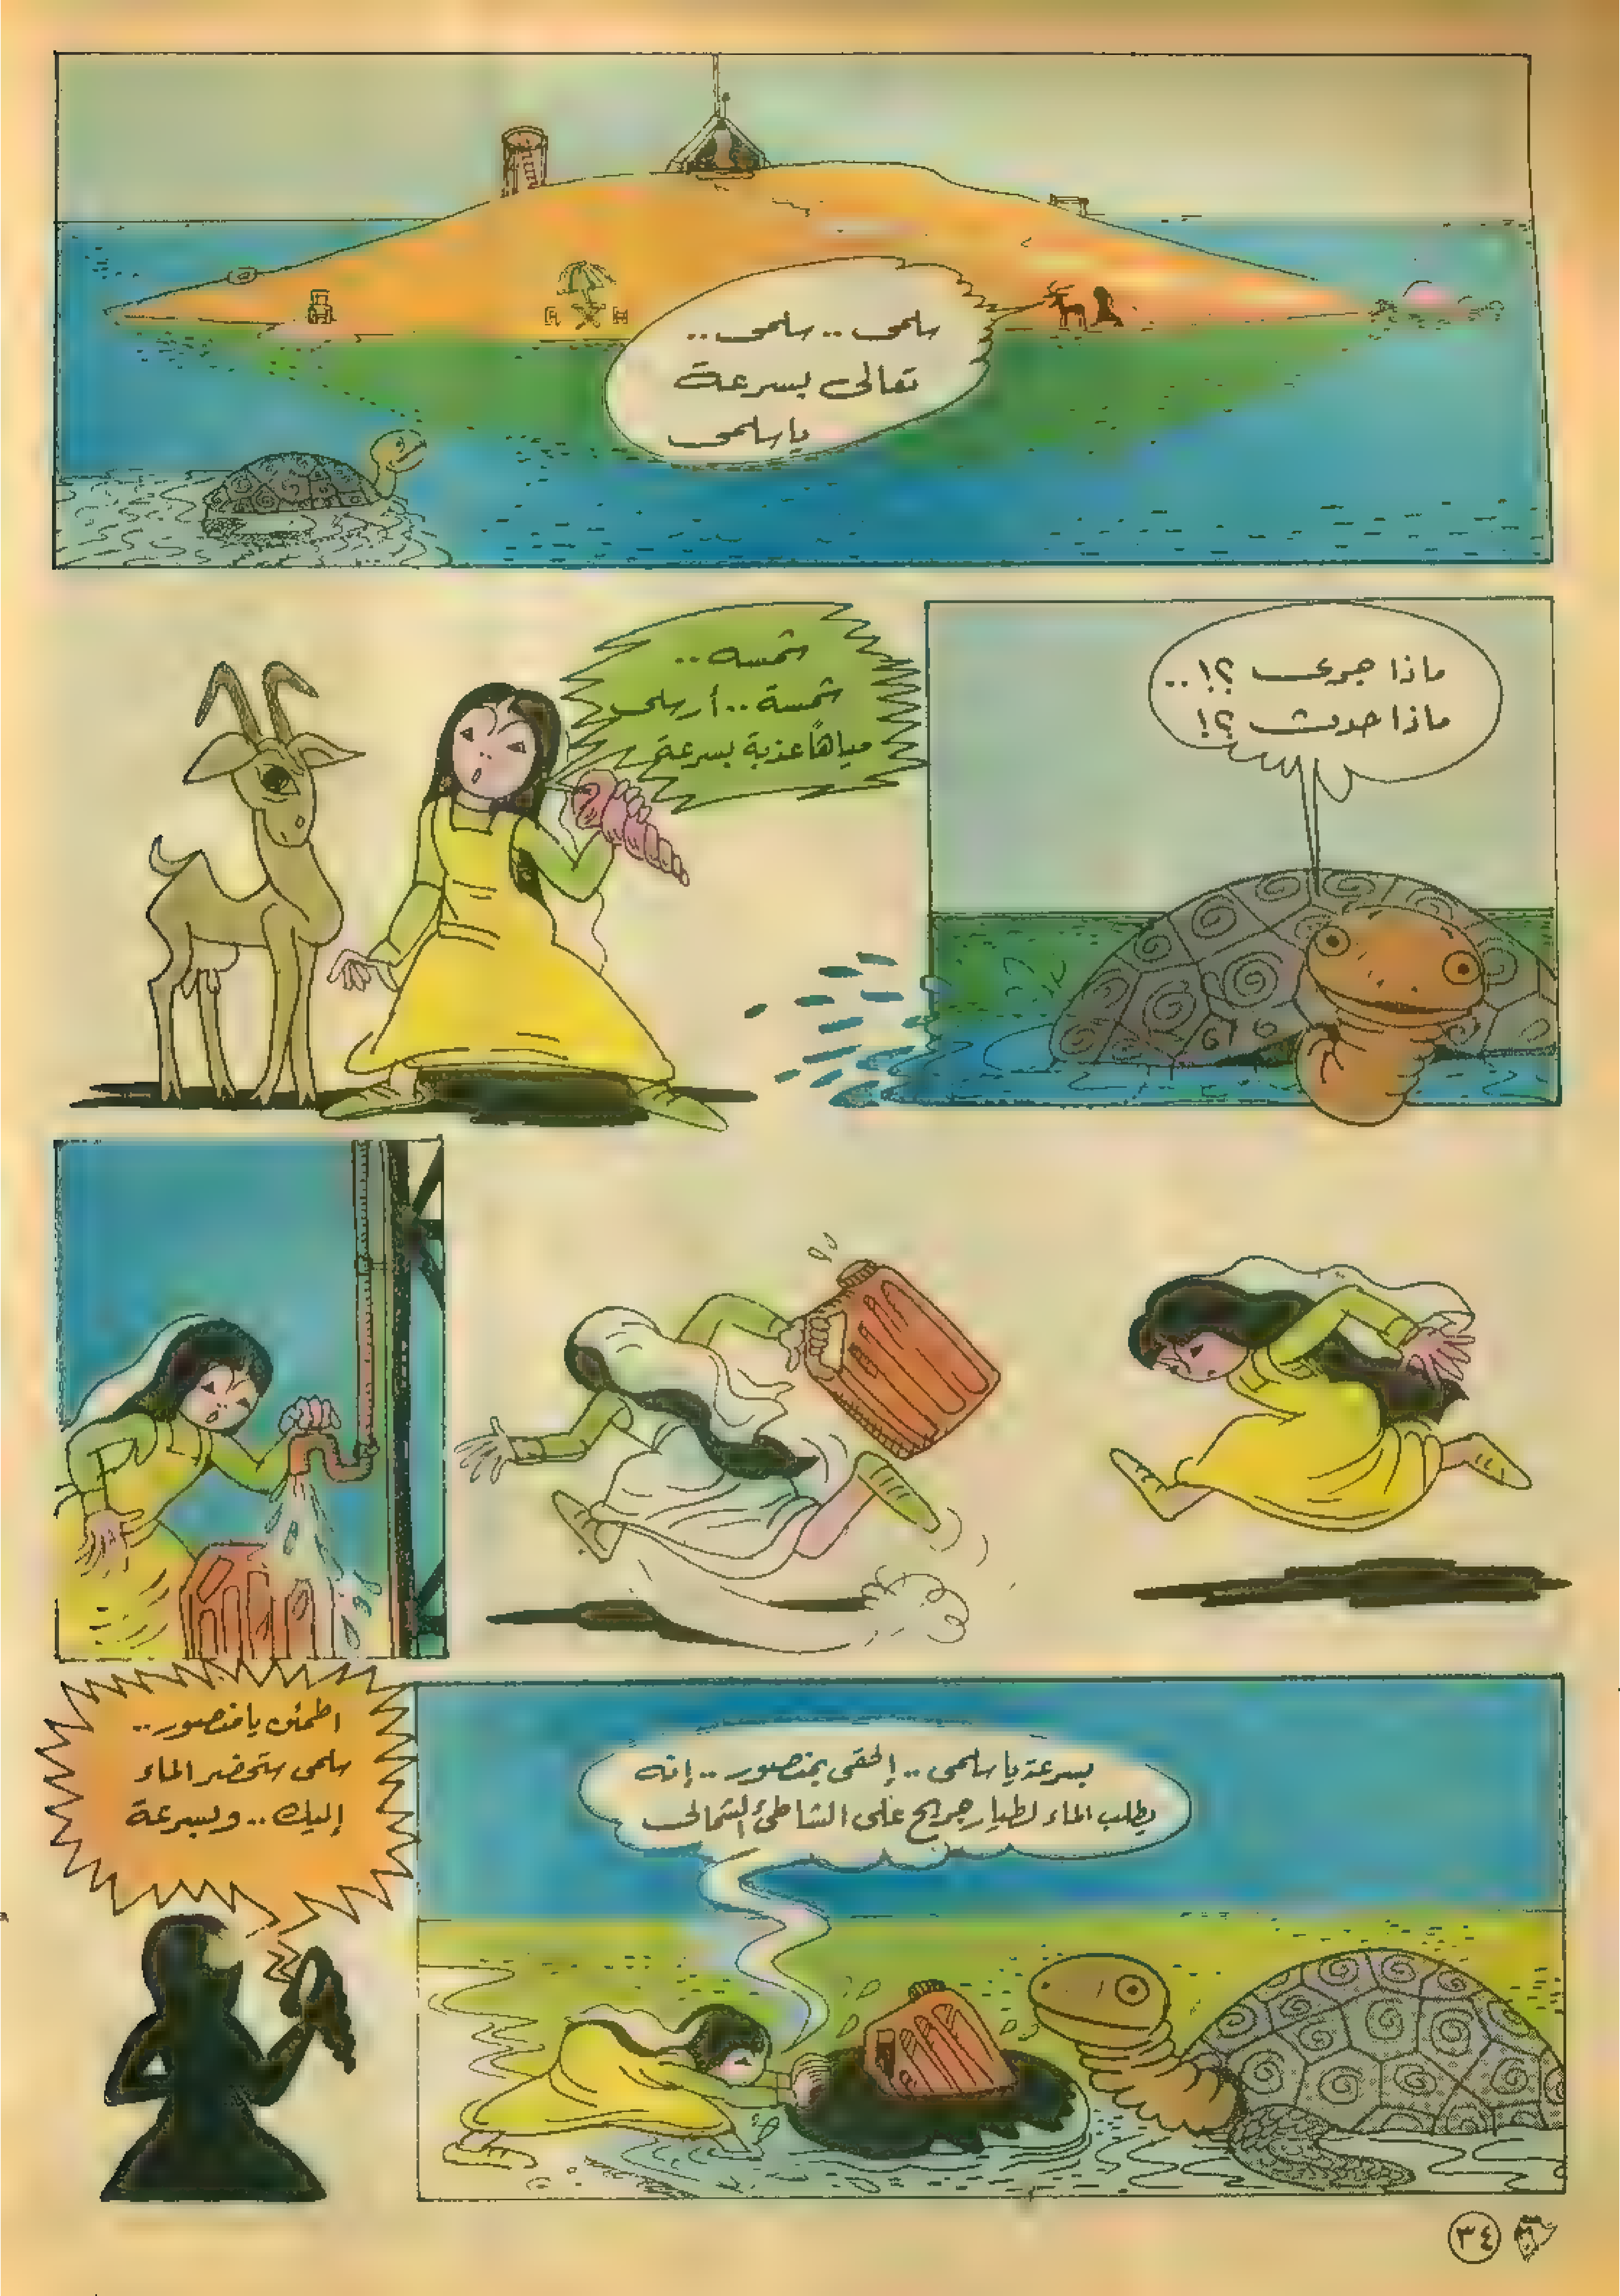 سلمى .. سلمى ..
تعالى بسرعة
يا سلمى
ماذا جرى ؟! ..
ماذا حدث ؟!
شمسه ..
شمسة .. أرسلى
مياهاً عذبة بسرعة
بسرعة يا سلمى .. إلحقى بمنصور .. إنه
يطلب الماء لطيار جريح على الشاطئ الشمالى
اطمئن يا منصور ..
سلمى ستحضر الماء
إليك .. وبسرعة
٣٤